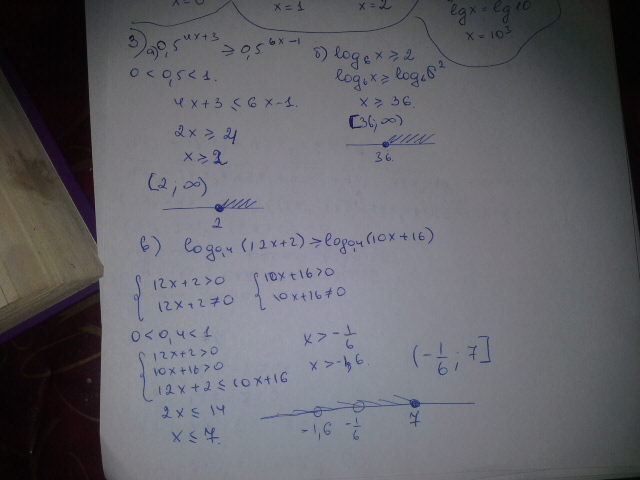 x=0 x=1 x=2
lg x = lg 10
x = 10³
3) а) 0,5^(4x+3) ≥ 0,5^(6x-1)
0 < 0,5 < 1.
4x+3 ≤ 6x-1.
2x ≥ 4
x ≥ 2
[2; ∞)
2
б) log₆ x ≥ 2
log₆ x ≥ log₆ 6²
x ≥ 36.
[36; ∞)
36
в) log₀,₄ (12x+2) ≥ log₀,₄ (10x+16)
{ 12x+2>0 { 10x+16>0
12x+2≠0 10x+16≠0
0 < 0,4 < 1
{ 12x+2>0
10x+16>0
12x+2 ≤ 10x+16
2x ≤ 14
x ≤ 7.
x > -1/6
x > -1,6
(-1/6; 7]
-1,6 -1/6 7